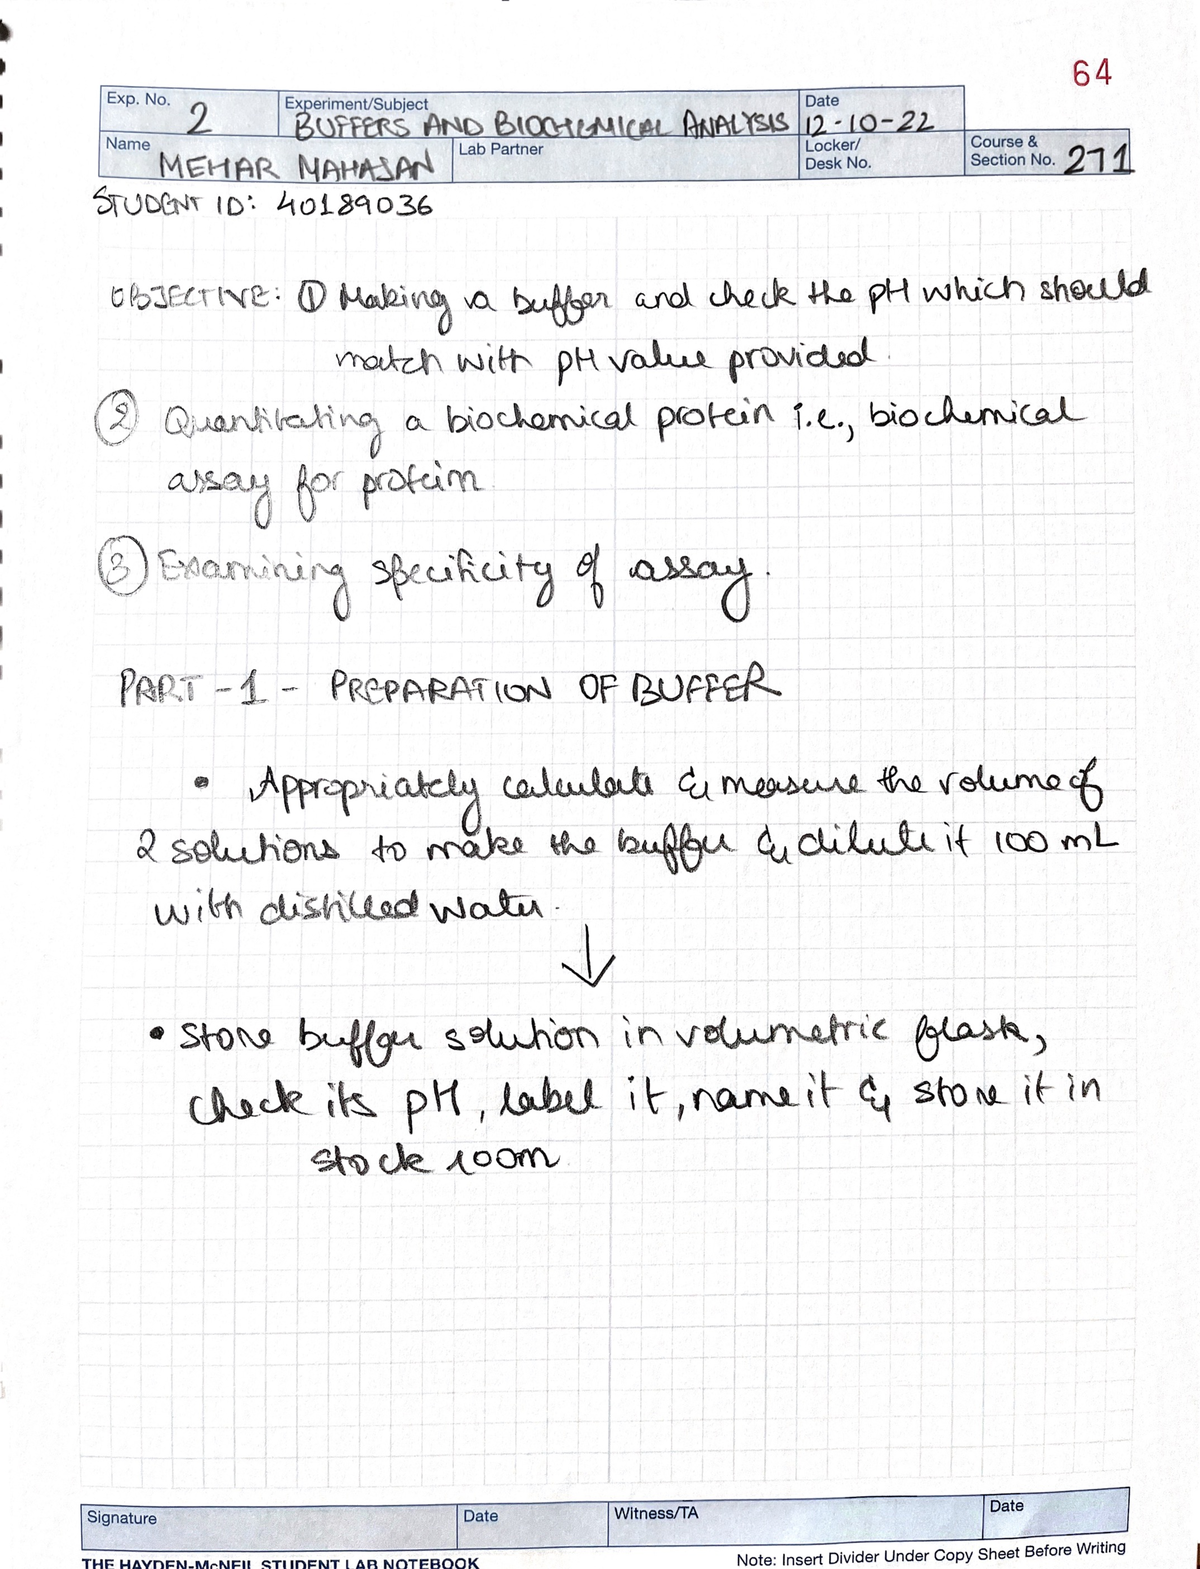 64
Exp. No. 2
Experiment/Subject BUFFERS AND BIOCHEMICAL ANALYSIS
Date 12-10-22
Name MEHAR MAHAJAN
Lab Partner
Locker/ Desk No.
Course & Section No. 271
STUDENT ID: 40189036
OBJECTIVE: ① Making a buffer and check the pH which should
match with pH value provided.
② Quantitating a biochemical protein i.e., biochemical
assay for protein.
③ Examining specificity of assay.
PART-1 - PREPARATION OF BUFFER
• Appropriately calculate & measure the volume of
2 solutions to make the buffer & dilute it 100 mL
with distilled water.
↓
• Store buffer solution in volumetric flask,
check its pH, label it, name it & store it in
stock room
Signature
Date
Witness/TA
Date
THE HAYDEN-McNEIL STUDENT LAB NOTEBOOK
Note: Insert Divider Under Copy Sheet Before Writing